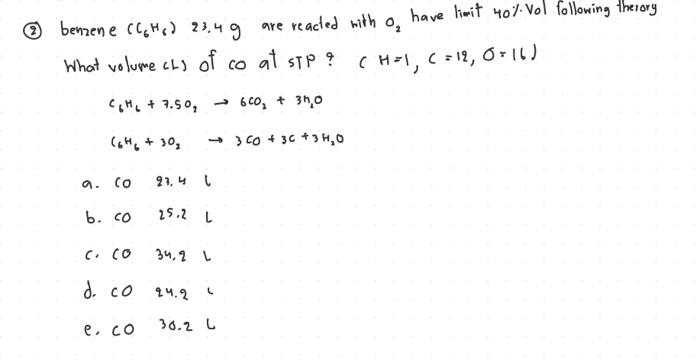 ② benzene (C₆H₆) 23.4 g are reacted with O₂ have limit 40% Vol following therory
What volume (L) of CO at STP ? ( H=1, C=12, O=16)
C₆H₆ + 7.5O₂ → 6CO₂ + 3H₂O
C₆H₆ + 3O₂ → 3CO + 3C + 3H₂O
a. CO 23.4 L
b. CO 25.2 L
c. CO 34.2 L
d. CO 24.2 L
e. CO 30.2 L